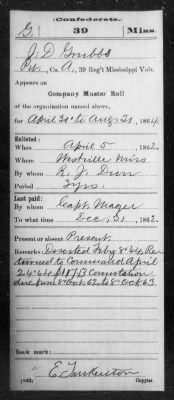 (Confederate.)
G. 39 Miss.
J. D. Grubbs
Pvt., Co. A., 39 Reg't Mississippi Vols.
Appears on
Company Muster Roll
of the organization named above,
for April 30 to Aug 31, 1864.
Enlisted:
When April 5, 1862.
Where Miss
By whom R. J. Durr
Period 3 yrs.
Last paid:
By whom Capt. Magee
To what time Dec, 31, 1862.
Present or absent Present
Remarks: Deserted Feby 8" 64, Re
turned to Command April
24" 64 Comutation
due from 8 Oct 62 to 8 Oct 63
Book mark:
E. Turkenton
(642) Copyist.